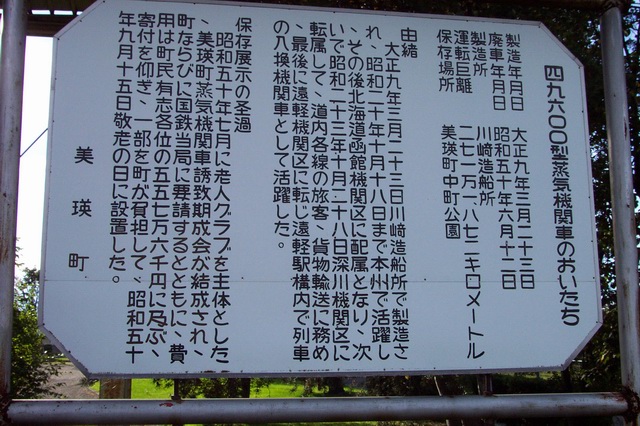 四九六〇〇型蒸気機関車のおいたち
製造年月日 大正九年三月二十三日
廃車年月日 昭和五十年六月十二日
製造所 川崎造船所
運転距離 二七一万一、八七二キロメートル
保存場所 美瑛町中町公園
由緒
大正九年三月二十三日川崎造船所で製造さ
れ、昭和二十年十月十八日まで本州で活躍し
、その後北海道函館機関区に配属となり、次
いで昭和二十三年十月二十八日深川機関区に
転属して、道内各線の旅客、貨物輸送に務め
、最後に遠軽機関区に転じ遠軽駅構内で列車
の入換機関車として活躍した。
保存展示の経過
昭和五十年七月に老人クラブを主体とした
、美瑛町蒸気機関車誘致期成会が結成され、
町ならびに国鉄当局に要請するとともに、費
用は町民有志各位の五五七万六千円に及ぶ、
寄付を仰ぎ、一部を町が負担して、昭和五十
年九月十五日敬老の日に設置した。
美瑛町